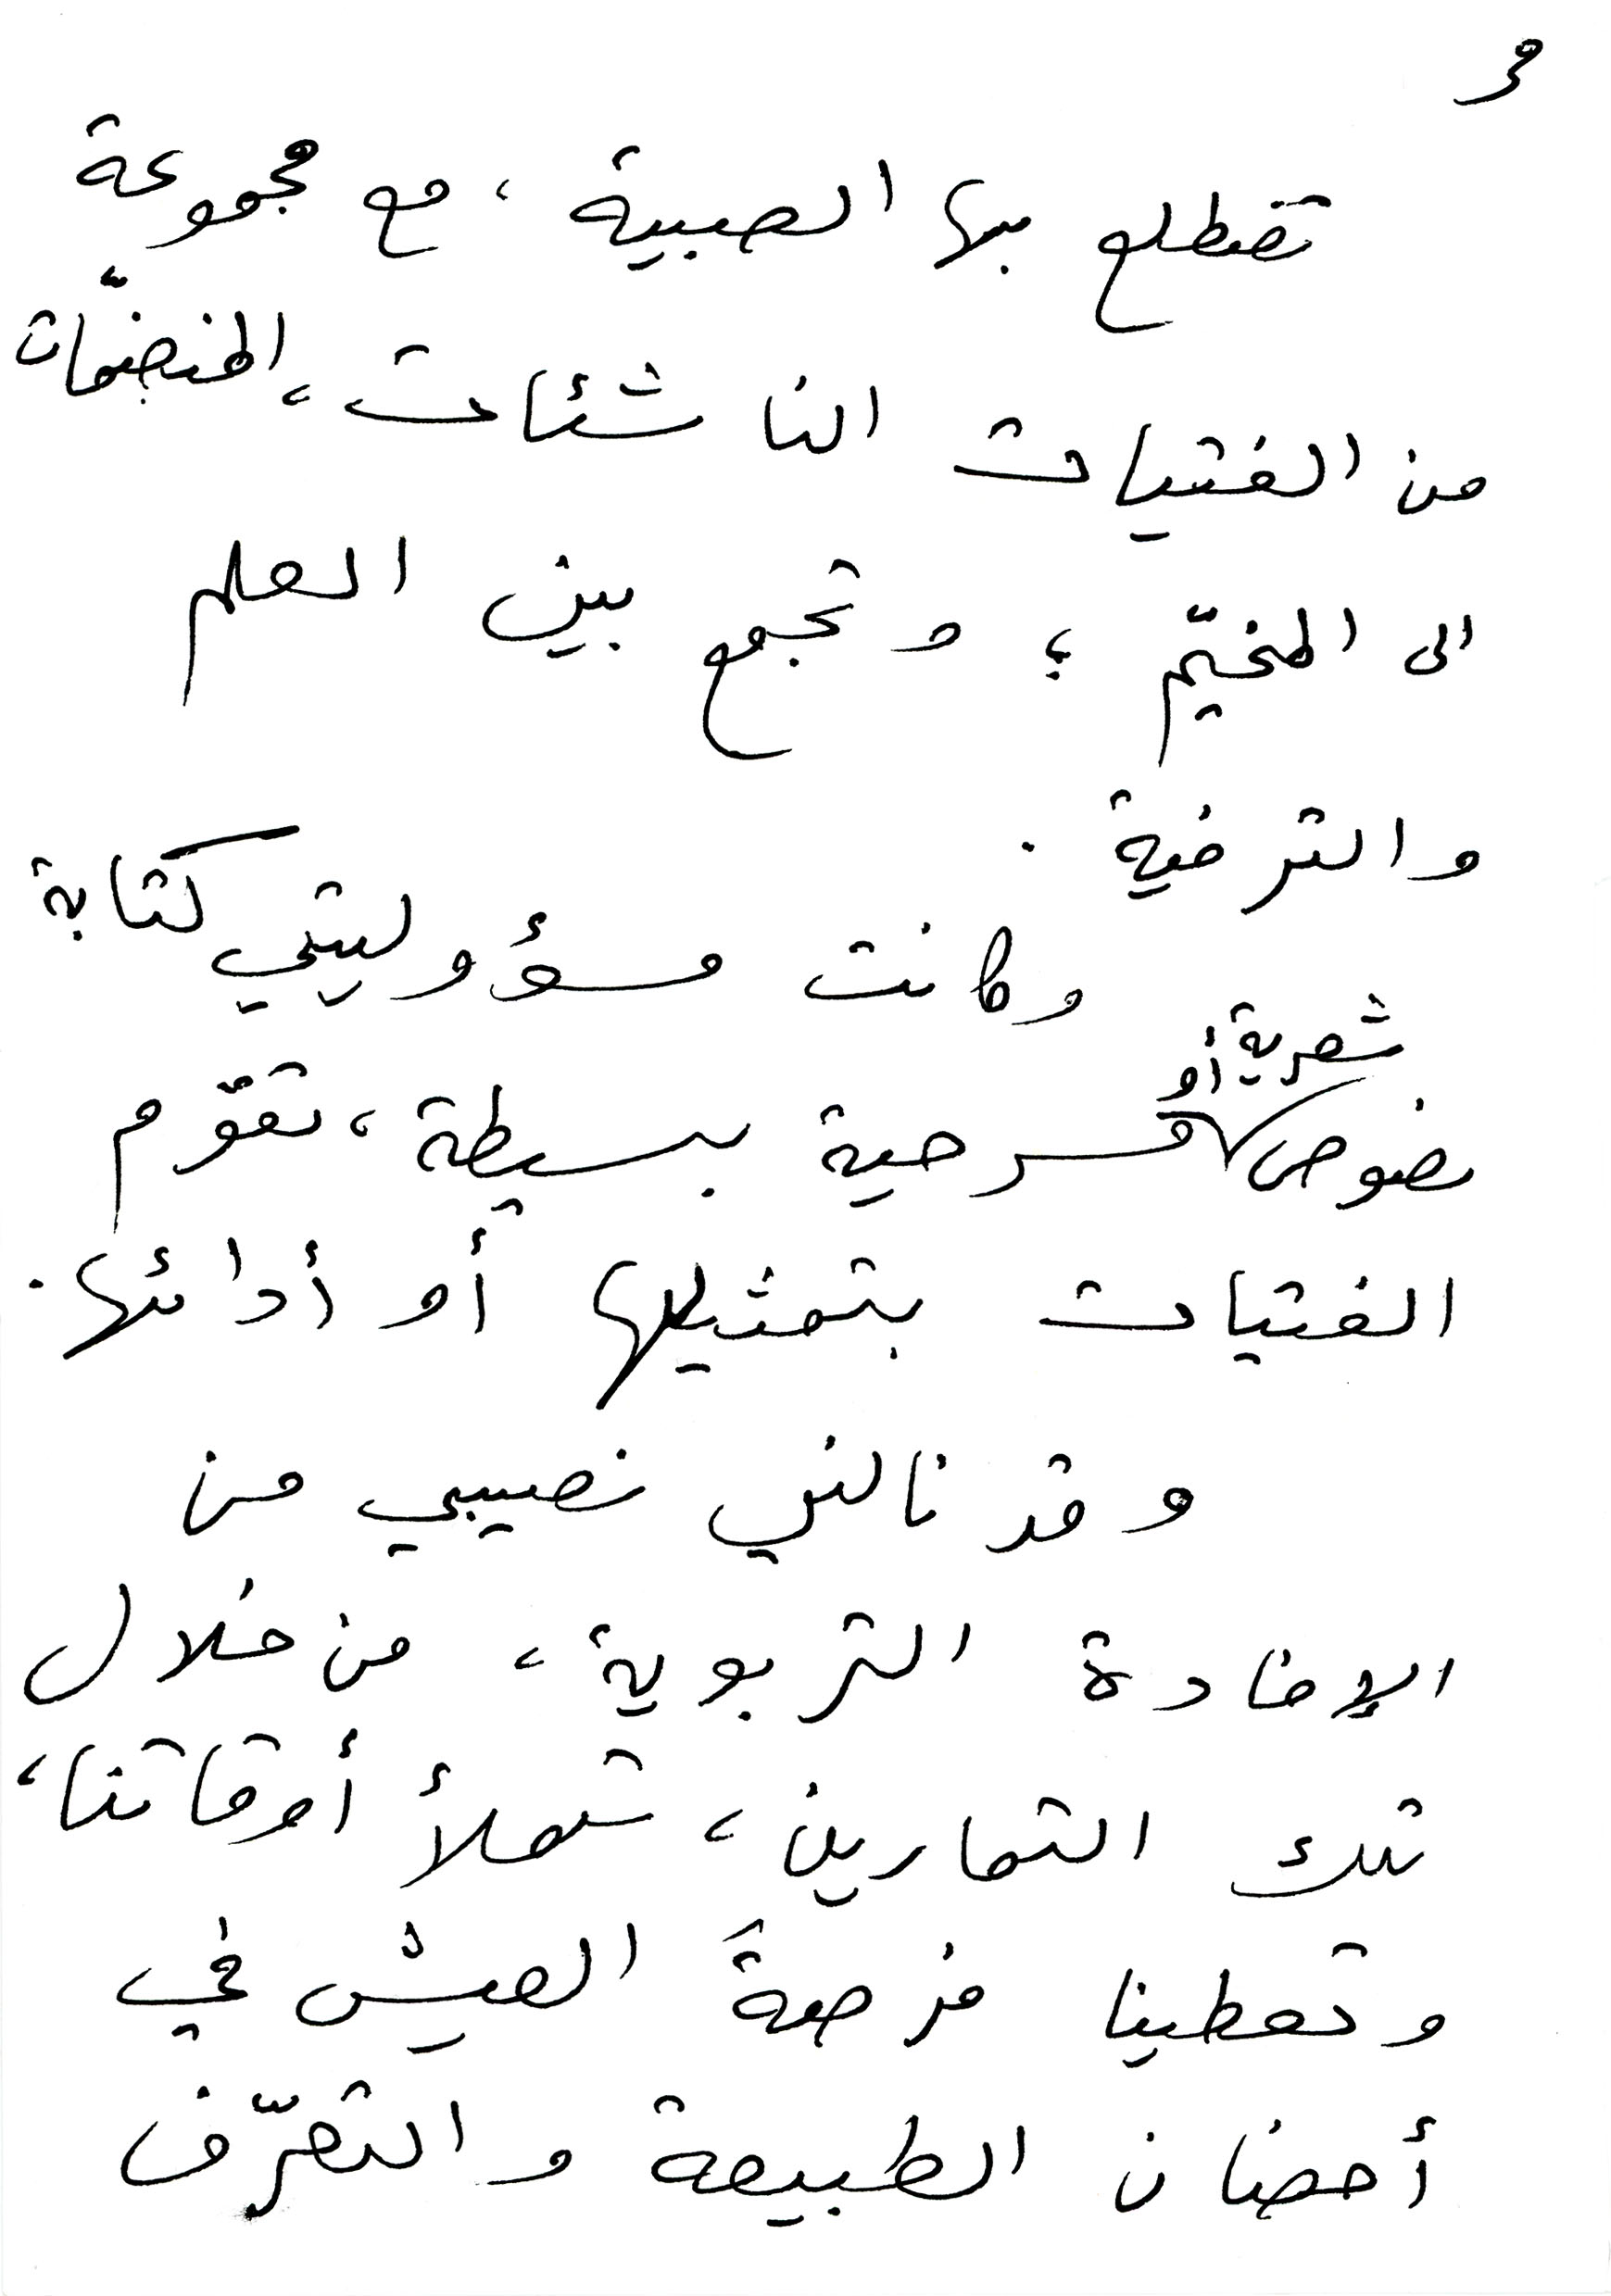 تضطلع بها الصبية، مع مجموعة
من الفتيات الناشئات، المنضمّات
الى المخيّم؛ وتجمع بين العلم
والترفية.
وكانت مسؤوليتي كتابة
شعرية أو
نصوص مسرحية بسيطة، تقوّم
الفتيات بتمثيلها أو أدائها.
وقد نالني نصيبي من
الإفادة التربوية، من خلال
تلك التمارين، تملأ أوقاتنا،
وتعطينا فرصةً العيش في
أحضان الطبيعة والتعرّف